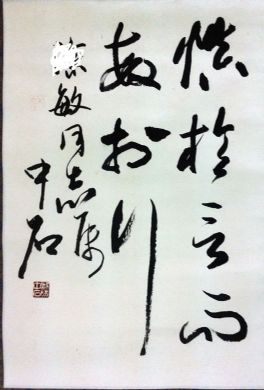 慎於言而
敏於行
敏同志属
中石